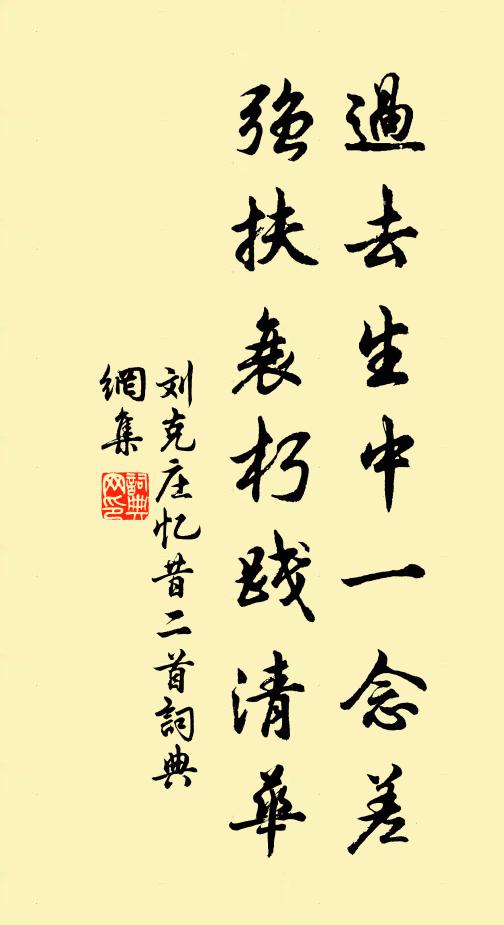 過去生中一念差
強扶衰朽踐清華
刘克庄忆昔二首詞典
網集
詞典
网印